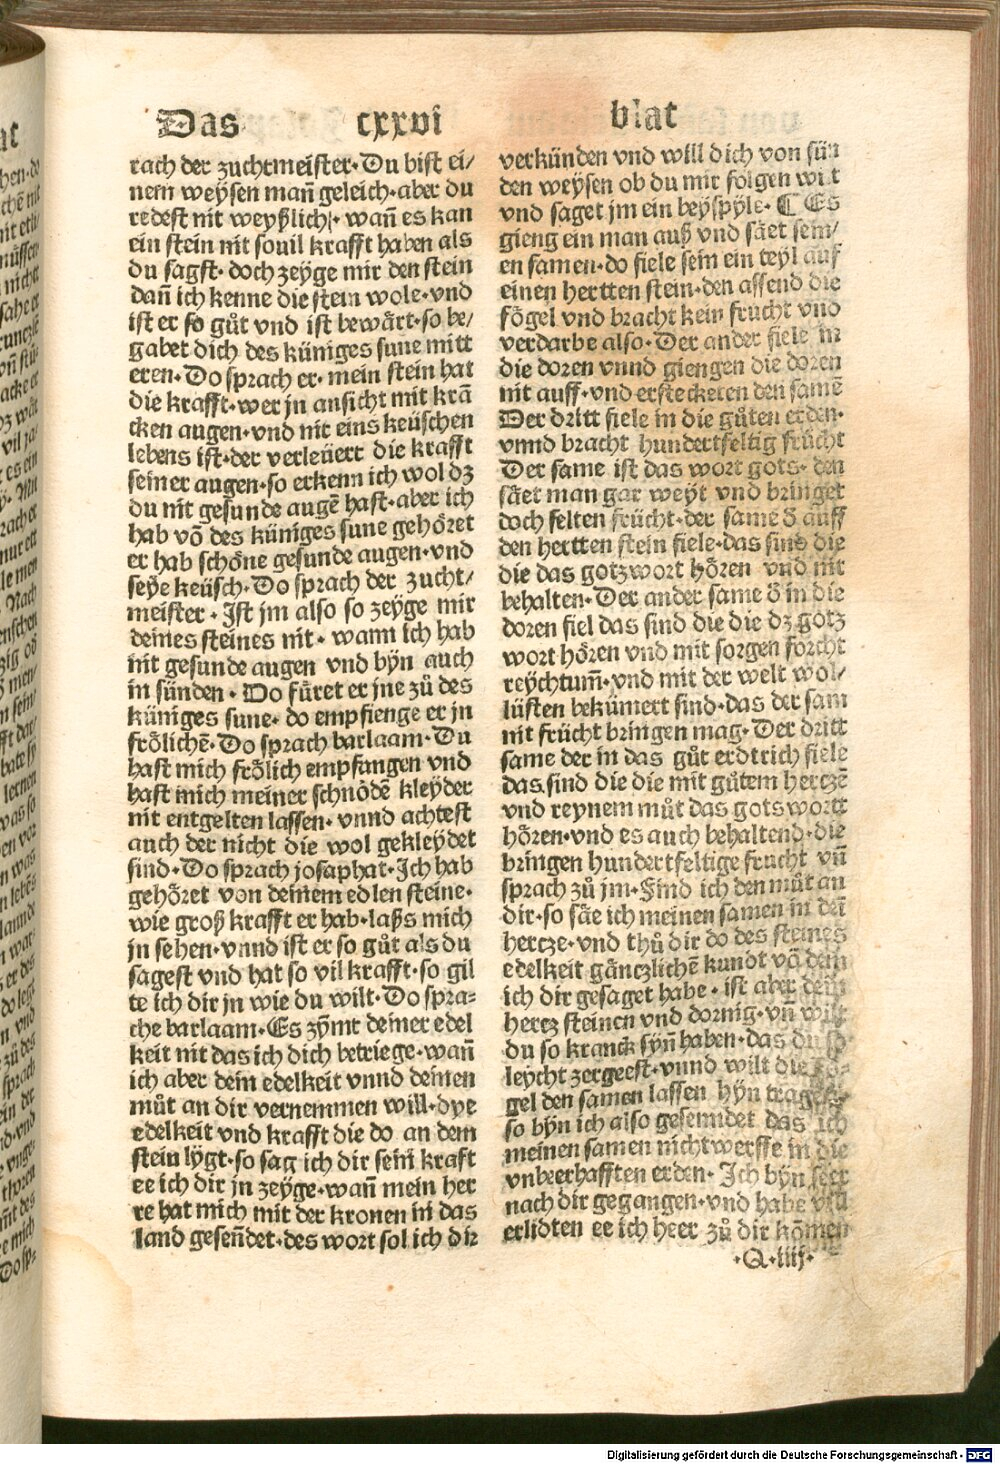 Das cxxvi blat
rach der zuchtmeister·Du bist ei/
nem weysen mañ geleich·aber du
redest nit weyßlich·wañ es kan
ein stein nit souil krafft haben als
du sagst·doch zeyge mir den stein
dañ ich kenne die stein wole·vnd
ist er so gůt vnd ist bewärt·so be/
gabet dich des küniges sune mitt
eren·Do sprach er·mein stein hat
die krafft·wer jn ansicht mit krā
cken augen·vnd nit eins keüschen
lebens ist·der verleüert die krafft
seiner augen·so erkenn ich wol dz
du nit gesunde augē hast·aber ich
hab vō des küniges sune gehöret
er hab schöne gesunde augen·vnd
seye keüsch·Do sprach der zucht/
meister·Ist jm also so zeyge mir
deines steines nit·wann ich hab
nit gesunde augen vnd bÿn auch
in sünden·Do füret er jne zů des
küniges sune·do empfienge er jn
frölichē·Do sprach barlaam·Du
hast mich frölich empfangen vnd
hast mich meiner schnödē kleyder
nit entgelten lassen·vnnd achtest
auch der nicht die wol gekleydet
sind·Do sprach josaphat·Ich hab
gehöret von deinem edlen steine·
wie groß krafft er hab·laß mich
jn sehen·vnnd ist er so gůt als du
sagest vnd hat so vil krafft·so gil
te ich dir jn wie du wilt·Do spra-
che barlaam·Es zÿmt deiner edel
keit nit das ich dich betriege·wañ
ich aber dein edelkeit vnnd deinen
můt an dir vernemmen will·dye
edelkeit vnd krafft die do an dem
stein lÿgt·so sag ich dir sein kraft
ee ich dir jn zeyge·wañ mein her
re hat mich mit der kronen in das
land geseñdet·des wort sol ich dir
verkünden vnd will dich von sün
den weysen ob du mir folgen wilt
vnd saget jm ein beyspÿle·¶ Es
gieng ein man auß vnd säet sein/
en samen·do fiele sein ein teyl auf
einen hertten stein·den assend die
fögel vnd bracht kein frucht vnd
verdarbe also·Der ander fiele in
die doren vnnd giengen die doren
nit auff·vnd ersteckten den samē
Der dritt fiele in die gůten erden·
vnnd bracht hundertfeltig frücht
Der same ist das wort gots·den
säet man gar weyt vnd bringet
doch selten frücht·der same d̄ auff
den hertten stein fiele·das sind die
die das gotzwort hören vnd nit
behalten·Der ander same d̄ in die
doren fiel das sind die die dz gotz
wort hören vnd mit sorgen forcht
reychtum̄·vnd mit der welt wol/
lüsten bekümert sind·das der sam
nit frücht bringen mag·Der dritt
same der in das gůt erdtrich fiele
das sind die die mit gůtem hertzē
vnd reynem můt das gots wortt
hören·vnd es auch behaltend·die
bringen hundertfeltige frucht vñ
sprach zů jm·Find ich den můt an
dir·so säe ich meinen samen in dein
hertze·vnd thů dir do des steines
edelkeit gäntzlichē kundt vō dem
ich dir gesaget habe·ist aber dein
hertz steinen vnd dornig·vñ wilt
du so kranck sÿn haben·das du so
leycht zergeest·vnnd wilt die fö-
gel den samen lassen hÿn tragen
so bÿn ich also gesenndet das ich
meinen samen nicht werffe in die
vnbeerhafften erden·Ich bÿn seer
nach dir gegangen·vnd habe vil
erlidten ee ich heer zů dir kōmen
·Q·iiij·
Digitalisierung gefördert durch die Deutsche Forschungsgemeinschaft - DFG